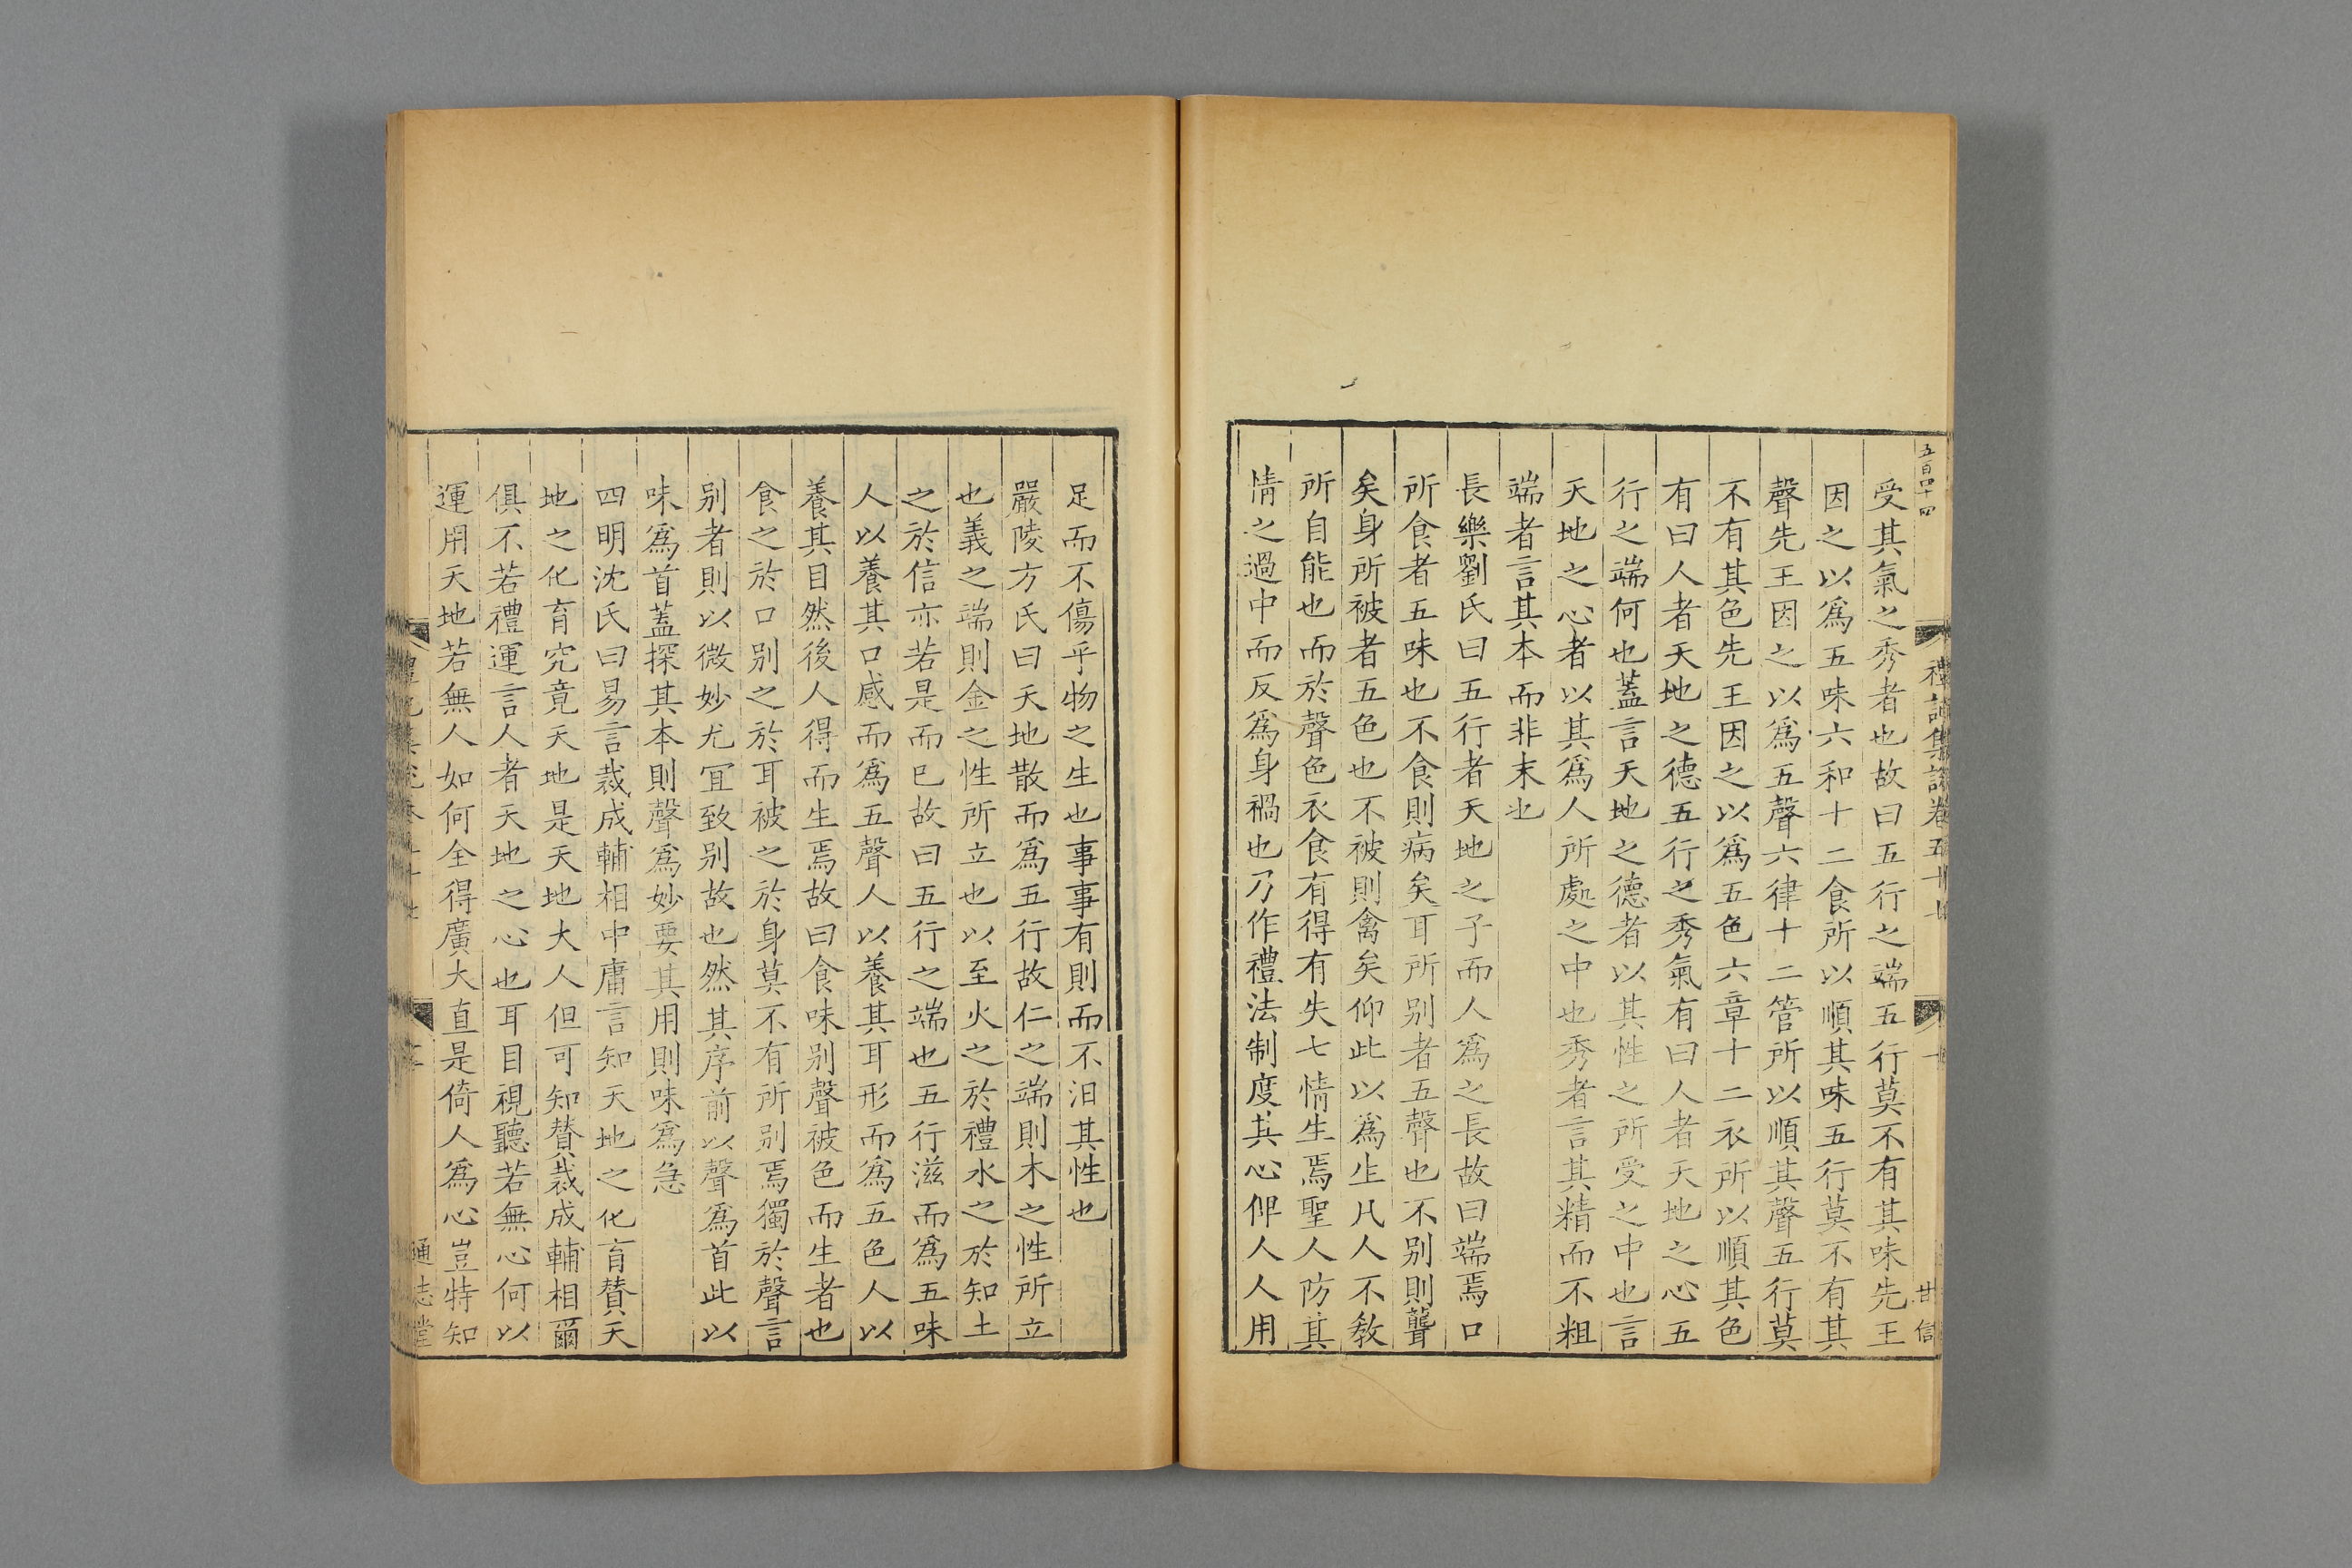 五百四十四
禮記集說卷五十七
甘
受其氣之秀者也故曰五行之端五行莫不有其味先王
因之以爲五味六和十二食所以順其味五行莫不有其
聲先王因之以爲五聲六律十二管所以順其聲五行莫
不有其色先王因之以爲五色六章十二衣所以順其色
有曰人者天地之德五行之秀氣有曰人者天地之心五
行之端何也蓋言天地之德者以其性之所受之中也言
天地之心者以其爲人所處之中也秀者言其精而不粗
端者言其本而非末也
長樂劉氏曰五行者天地之子而人爲之長故曰端焉口
所食者五味也不食則病矣耳所别者五聲也不别則聾
矣身所被者五色也不被則禽矣仰此以爲生凡人不敎
所自能也而於聲色衣食有得有失七情生焉聖人防其
情之過中而反爲身禍也乃作禮法制度其心俾人人用
足而不傷乎物之生也事事有則而不汩其性也
嚴陵方氏曰天地散而爲五行故仁之端則木之性所立
也義之端則金之性所立也以至火之於禮水之於知土
之於信亦若是而已故曰五行之端也五行滋而爲五味
人以養其口感而爲五聲人以養其耳形而爲五色人以
養其目然後人得而生焉故曰食味别聲被色而生者也
食之於口别之於耳被之於身莫不有所别焉獨於聲言
别者則以微妙尤宜致别故也然其序前以聲爲首此以
味爲首蓋探其本則聲爲妙要其用則味爲急
四明沈氏曰易言裁成輔相中庸言知天地之化育賛天
地之化育究竟天地是天地大人但可知賛裁成輔相爾
俱不若禮運言人者天地之心也耳目視聽若無心何以
運用天地若無人如何全得廣大直是倚人爲心豈特知
通志堂